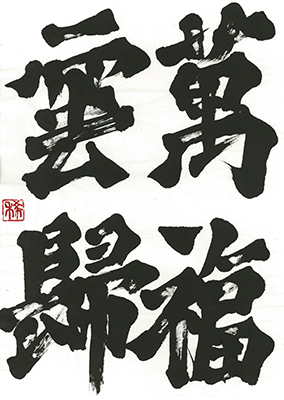 萬福
雲歸